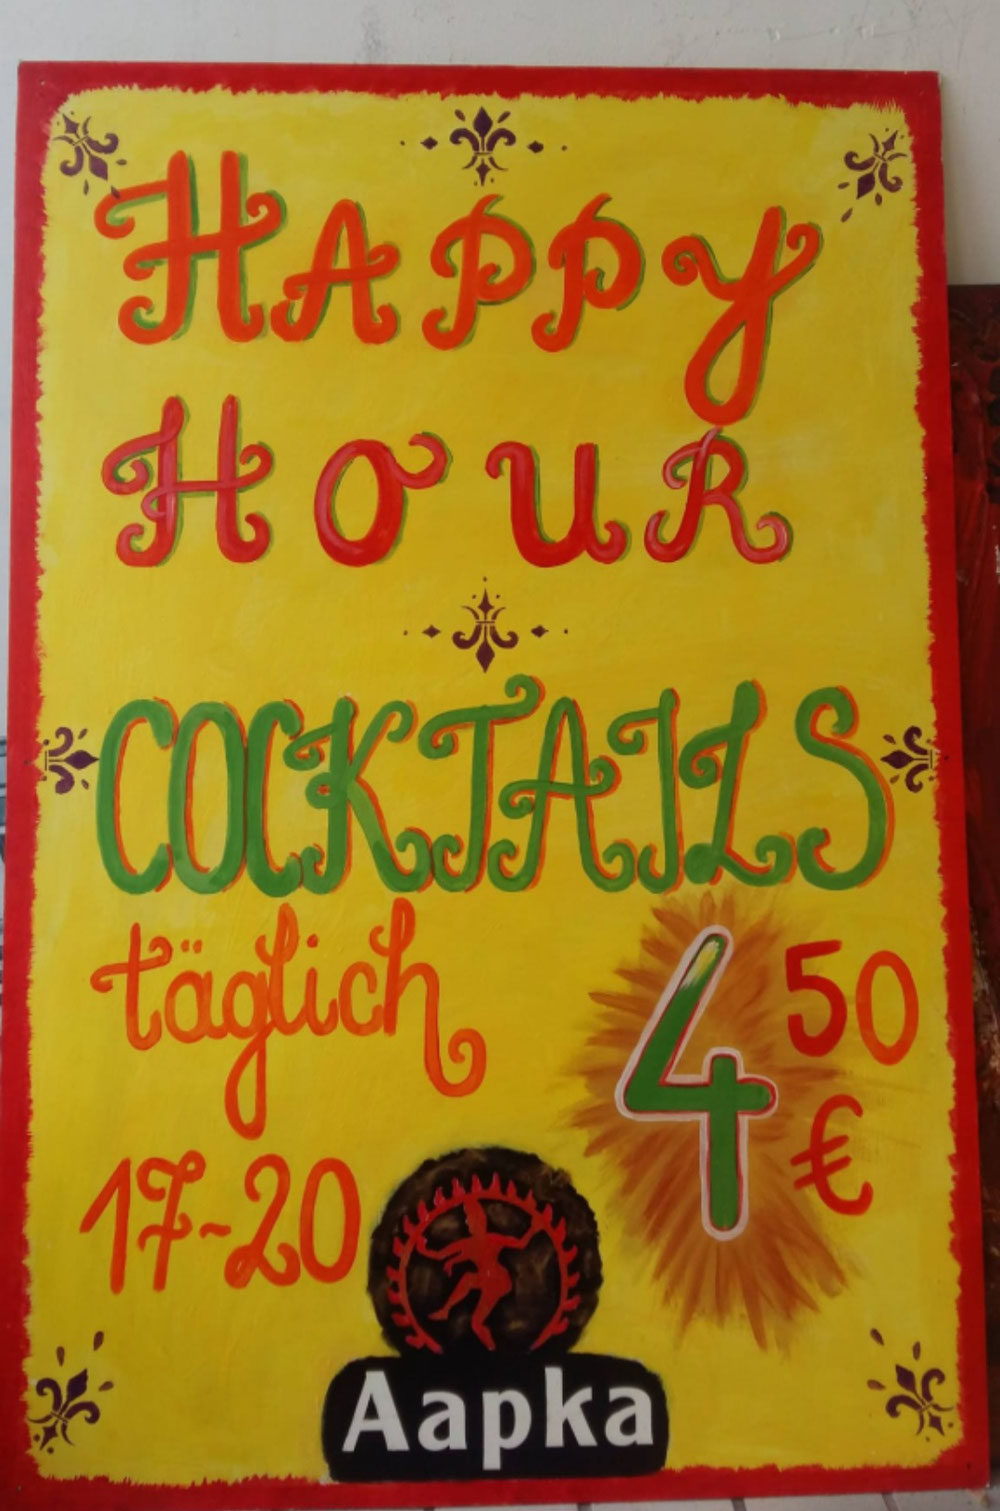 HAPPY
HOUR
COCKTAILS
täglich
17-20
4 50
€
Aapka